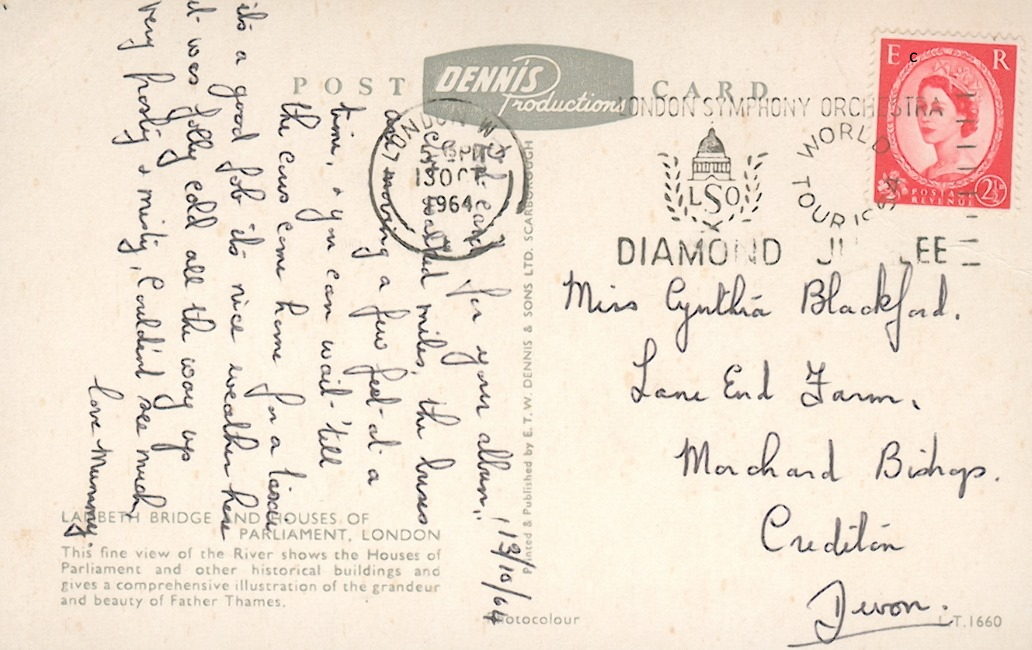 POST CARD
DENNIS
Productions
LONDON W
PM
13 OCT
1964
LONDON SYMPHONY ORCHESTRA
WORLD TOUR 1964
LSO
DIAMOND JUBILEE
E R
POSTAGE
REVENUE
2½D
card for your album,, 13/10/64
walked miles, the buses
are moving a few feet at a
time, & you can wait 'till
the cows come home for a taxi.
its a good job its nice weather here
it was jolly cold all the way up
very frosty & misty, couldn't see much,
love Mummy.
Printed & Published by E. T. W. DENNIS & SONS LTD. SCARBOROUGH
Miss Cynthia Blackford.
Lane End Farm,
Morchard Bishop.
Crediton
Devon.
LAMBETH BRIDGE AND HOUSES OF
PARLIAMENT, LONDON
This fine view of the River shows the Houses of
Parliament and other historical buildings and
gives a comprehensive illustration of the grandeur
and beauty of Father Thames.
Photocolour
L.T.1660